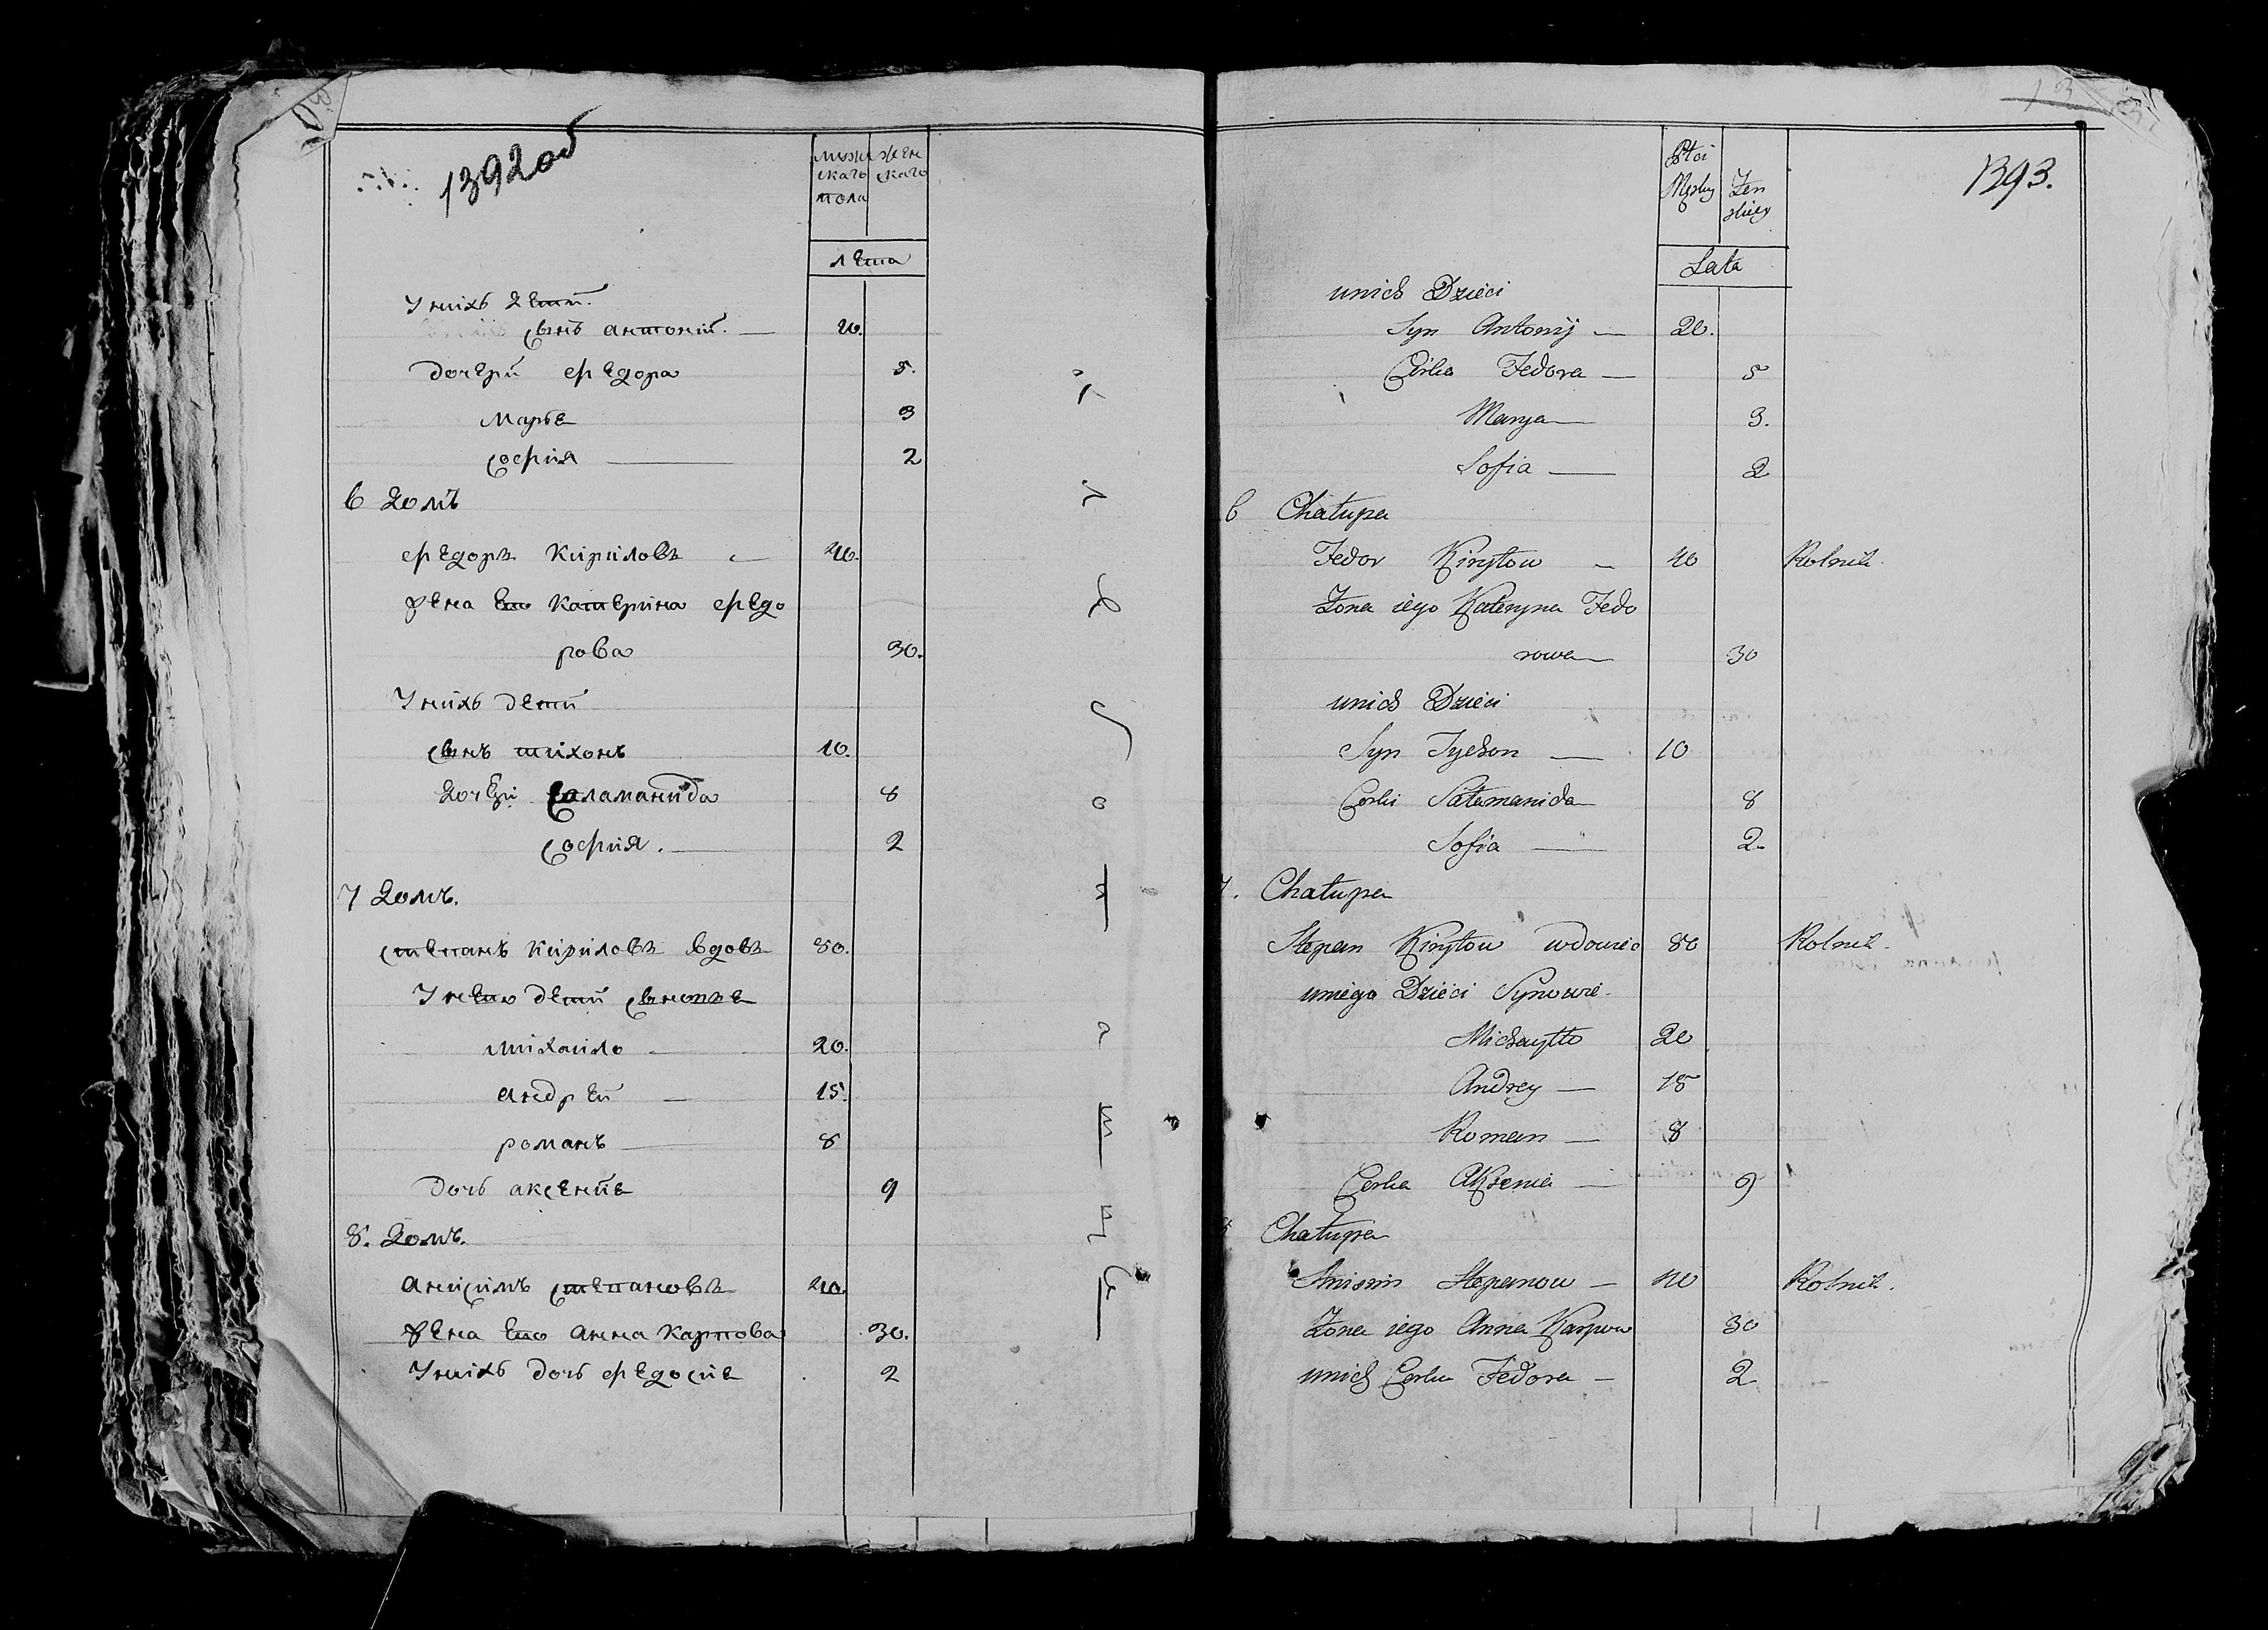 1392 об
мужскаго пола
женскаго
лета
У нихъ дети
сынъ антоній. — 20.
дочери федора 5.
марье 3
софия — 2
6 домъ
федоръ Кириловъ 40.
жена его катерина федо
рова 30.
У нихъ дети
сынъ тихонъ 10.
дочери Саламанида 8
софия. — 2
7 домъ.
степанъ Кириловъ вдовъ 80.
У него дети сыновье
михаило — 20.
андрей — 15.
романъ — 8
дочь аксение 9
8. домъ.
анисимъ степановъ 40.
жена его анна карпова 30.
У нихъ дочь федосие 2
1393.
Płci
Męskiey
Żenskiey
Lata
unich Dzieci
Syn Antonij — 20.
Córka Fedora — 5
Marya — 3.
Sofia — 2
6 Chałupa
Fedor Kiryłow — 40 Rolnik.
Żona iego Kateryna Fedo
rowa — 30
unich Dzieci
Syn Tychon — 10
Corki Sałamanida 8
Sofia — 2.
7. Chałupa
Stepan Kiryłow wdowiec 80 Rolnik.
uniego Dzieci Synowie.
Michayłło 20
Andrey — 15
Roman — 8
Corka Aksenia — 9
Chałupa
Anisim Stepanow — 40 Rolnik.
Żona iego Anna Karpow 30
unich Corka Fedora — 2